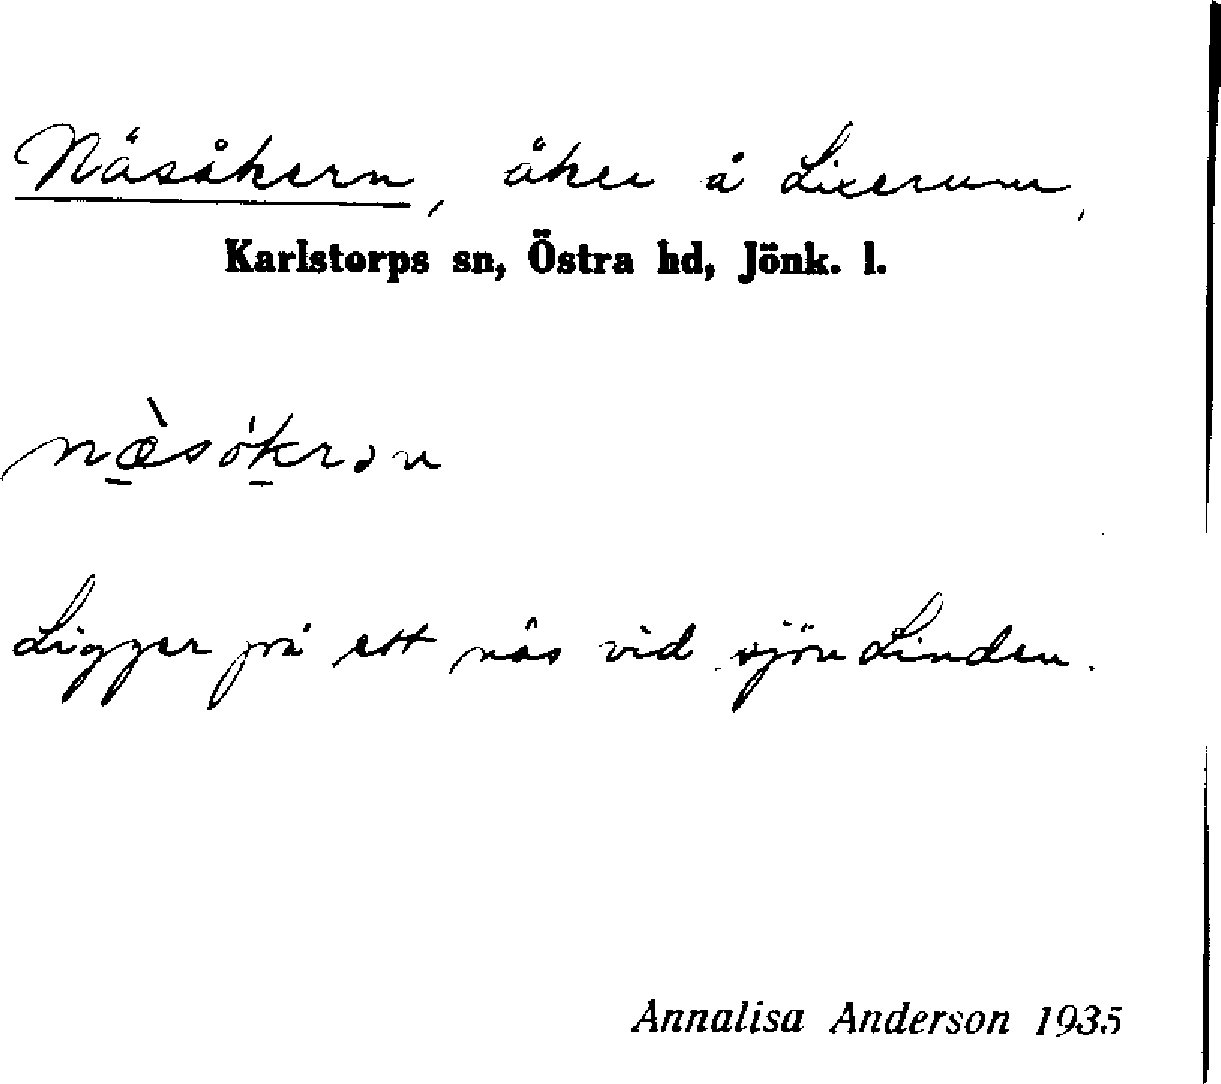 Näsåkern, åker å Lixerum,
Karlstorps sn, Östra hd, Jönk. l.
næ̀sókrən
Ligger på ett näs vid sjön Linden.
Annalisa Anderson 1935